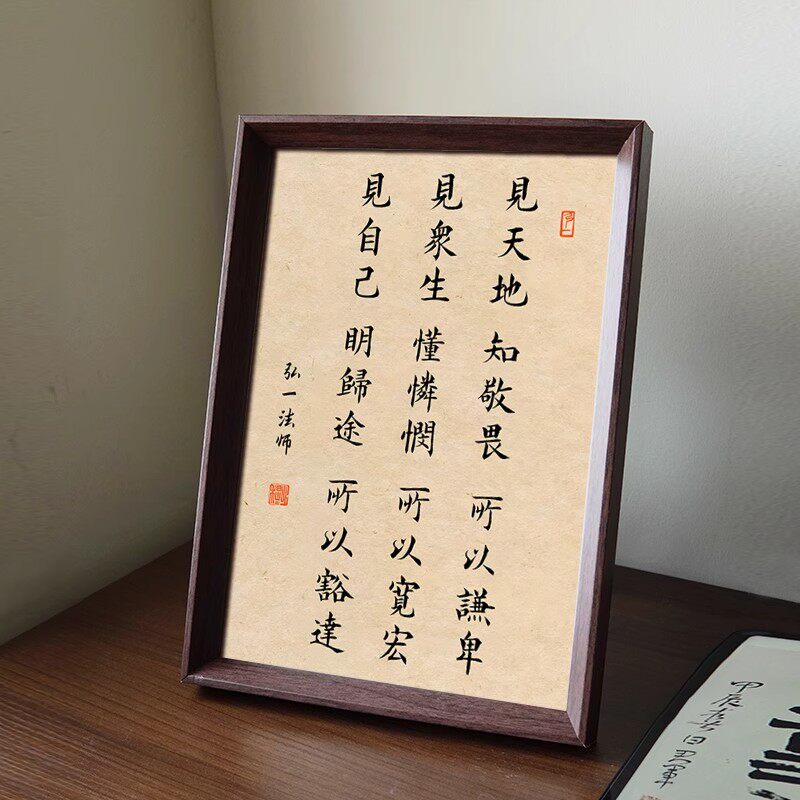 見天地 知敬畏 所以謙卑
見衆生 懂憐憫 所以寬宏
見自己 明歸途 所以豁達
弘一法师
甲辰